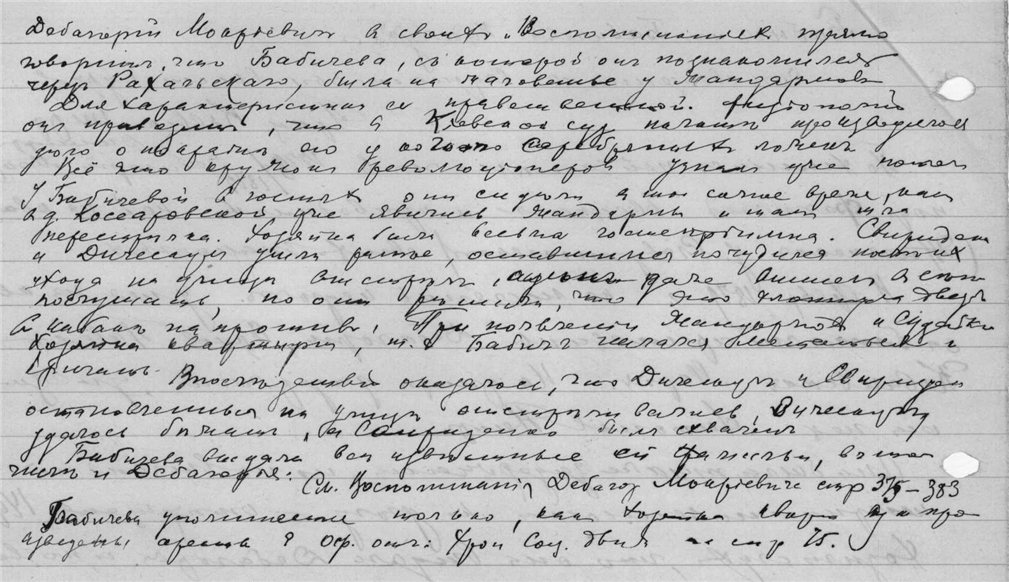 Дебагорий Мокриевич в своих "Воспоминаниях прямо
говорит, что Бабичева, с которой он познакомился
через Рахальского, была на жалованье у жандармов
Для характеристики ея нравственной физиономии
он приводит, что в Киевском суд начат
дого о краже ею у серебряных ложек
Всё это кружок революционеров узнал уже потом
У Бабичевой в гостях они сидели в то самое время, как
в д. Коссаровской уже явились жандармы и там шла
перестрелка. Хозяйка была весьма гостеприимна. Свириденко
и Дическул ушли ранее, оставшимся почудился после их
ухода на улице выстрелы, даже вышел в сени
послушать, но они решили что это хлопнула дверь
в кабаке напротив. При появлении жандармов и Судейкина
хозяйка квартиры, т.е. Бабичева начала метаться и
кричать.
Впоследствии оказалось, что Дическул и Свириденко
остановленные на улице отстреливались, Дическулу
удалось бежать, а Свириденко был схвачен
Бабичева выдала все известные ей фамилии, в том
числе и Дебагория:
См. Воспоминания Дебагор Мокриевича стр 375-383
Бабичева упоминается только, как хозяйка кварт
изведены аресты в Хрон Соц. движ на стр 75.